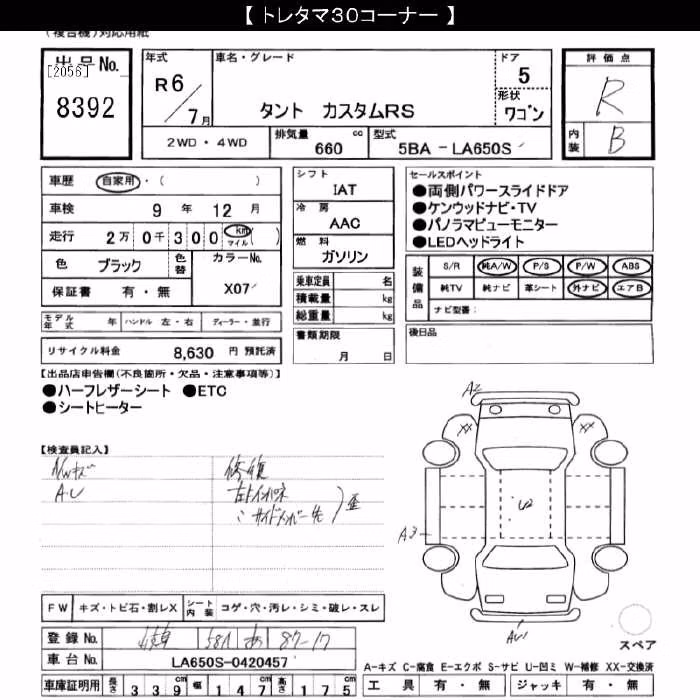 【 トレタマ30コーナー 】
(複合機)対応用紙
出品No.
[2056]
8392
年式
R6/7月
車名・グレード
タント カスタムRS
ドア
5
形状
ワゴン
2WD・4WD
排気量 cc
660
型式
5BA - LA650S
評価点
R
内装
B
車歴 自家用・( )
車検 9年 12月
走行 2万0千300 Km マイル ( )
色 ブラック
色替
カラーNo.
X07
保証書 有・無
モデル年式 年 ハンドル 左・右 ディーラー・並行
リサイクル料金 8,630 円 預託済
シフト
IAT
冷房
AAC
燃料
ガソリン
乗車定員 名
積載量 kg
総重量 kg
書類期限
月 日
セールスポイント
●両側パワースライドドア
●ケンウッドナビ・TV
●パノラマビューモニター
●LEDヘッドライト
装備品
S/R 純A/W P/S P/W ABS
純TV 純ナビ 革シート 外ナビ エアB
ナビ型番:
後日品
【出品店申告欄(不良箇所・欠品・注意事項等)】
●ハーフレザーシート ●ETC
●シートヒーター
【検査員記入】
A・U
修復
A2
XX XX
U2
A3
FW キズ・トビ石・割レX シート内装 コゲ・穴・汚レ・シミ・破レ・スレ
登録No. 581 あ 87-17
車台No. LA650S-0420457
車庫証明用 長さ 339 幅 147 高さ 175
スペア
A-キズ C-腐食 E-エクボ S-サビ U-凹ミ W-補修 XX-交換済
工具 有・無 ジャッキ 有・無